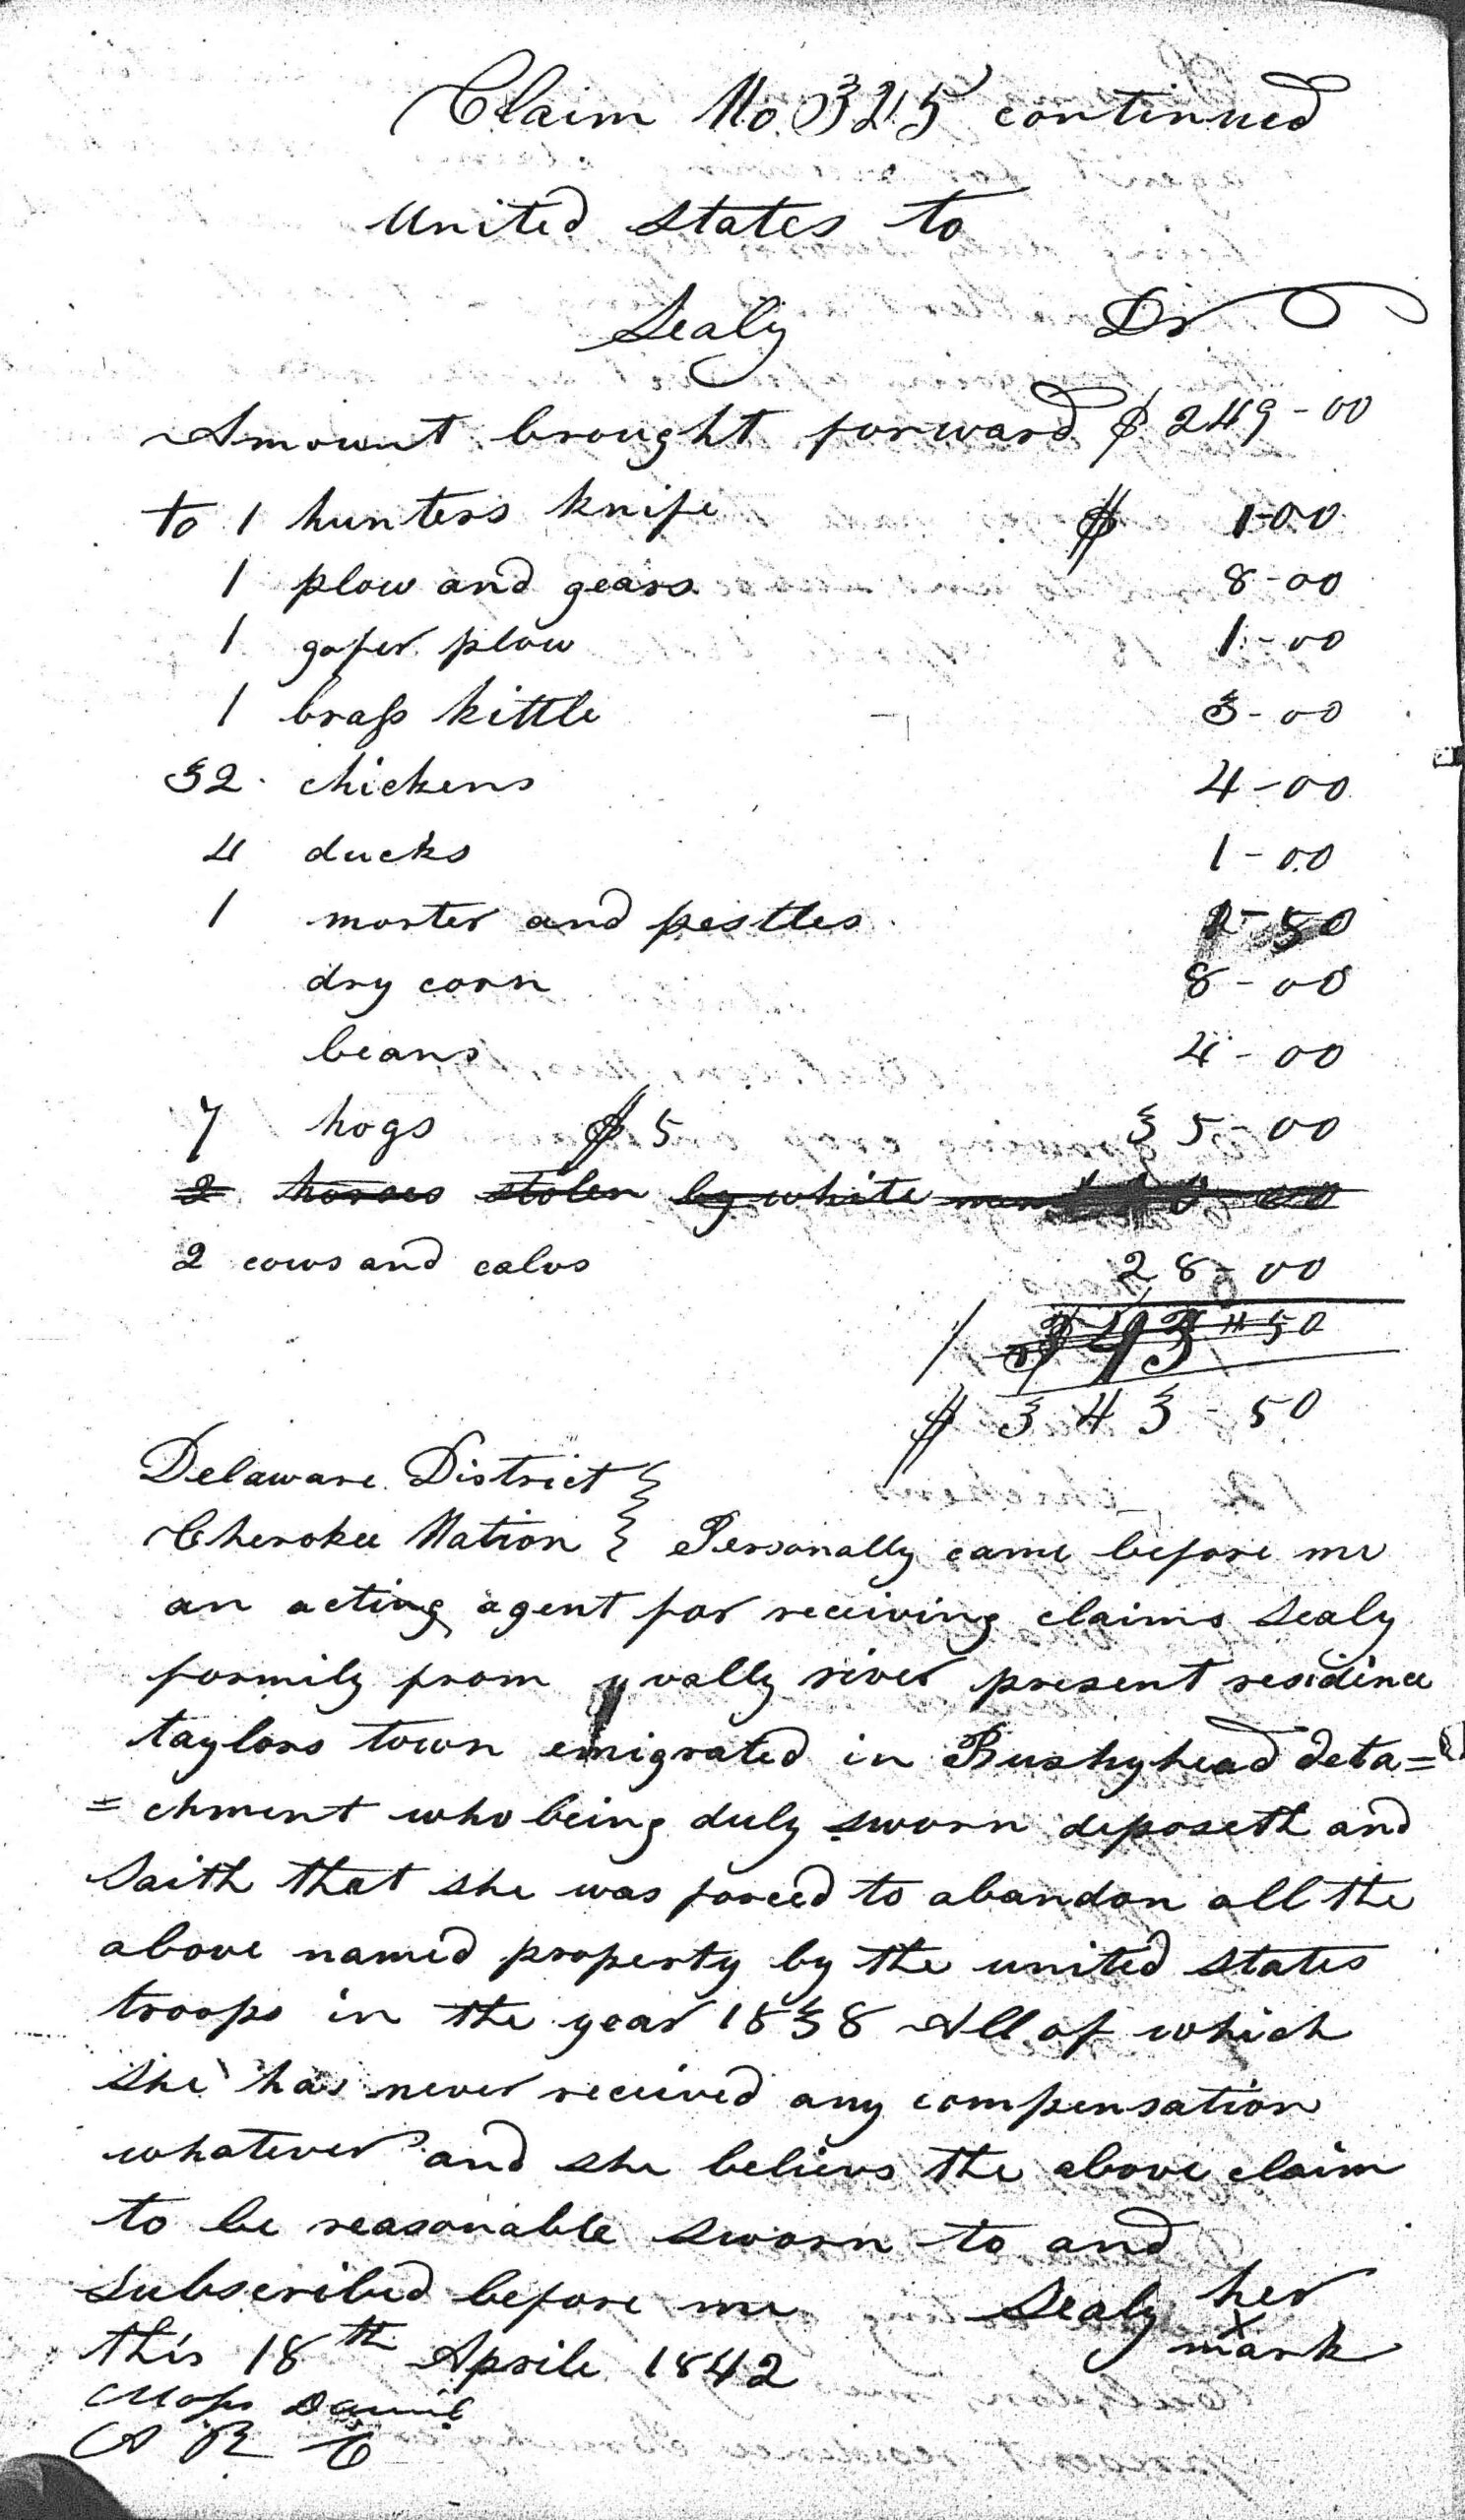 Claim No. 325 continued
United States to
Sealy Dr
Amount brought forward $ 249-00
to 1 hunters knife $ 1-00
1 plow and gears 8-00
1 gofer plow 1-00
1 brass kittle 3-00
32 chickens 4-00
4 ducks 1-00
1 morter and pestles 1-50
dry corn 8-00
beans 4-00
7 hogs $5 35-00
2 horses stolen by white men
2 cows and calvs 28-00
$ 343-50
Delaware District }
Cherokee Nation } Personally came before me
an acting agent for receiving claims Sealy
formily from vally river present residence
taylors town emigrated in Bushyhead deta=
=chment who being duly sworn deposeth and
Saith that she was forced to abandon all the
above named property by the united States
troops in the year 1838 All of which
She has never received any compensation
whatever and she believs the above claim
to be reasonable sworn to and
Subscribed before me Sealy her
x
mark
this 18th Aprile 1842
Moss Daniel
A R C